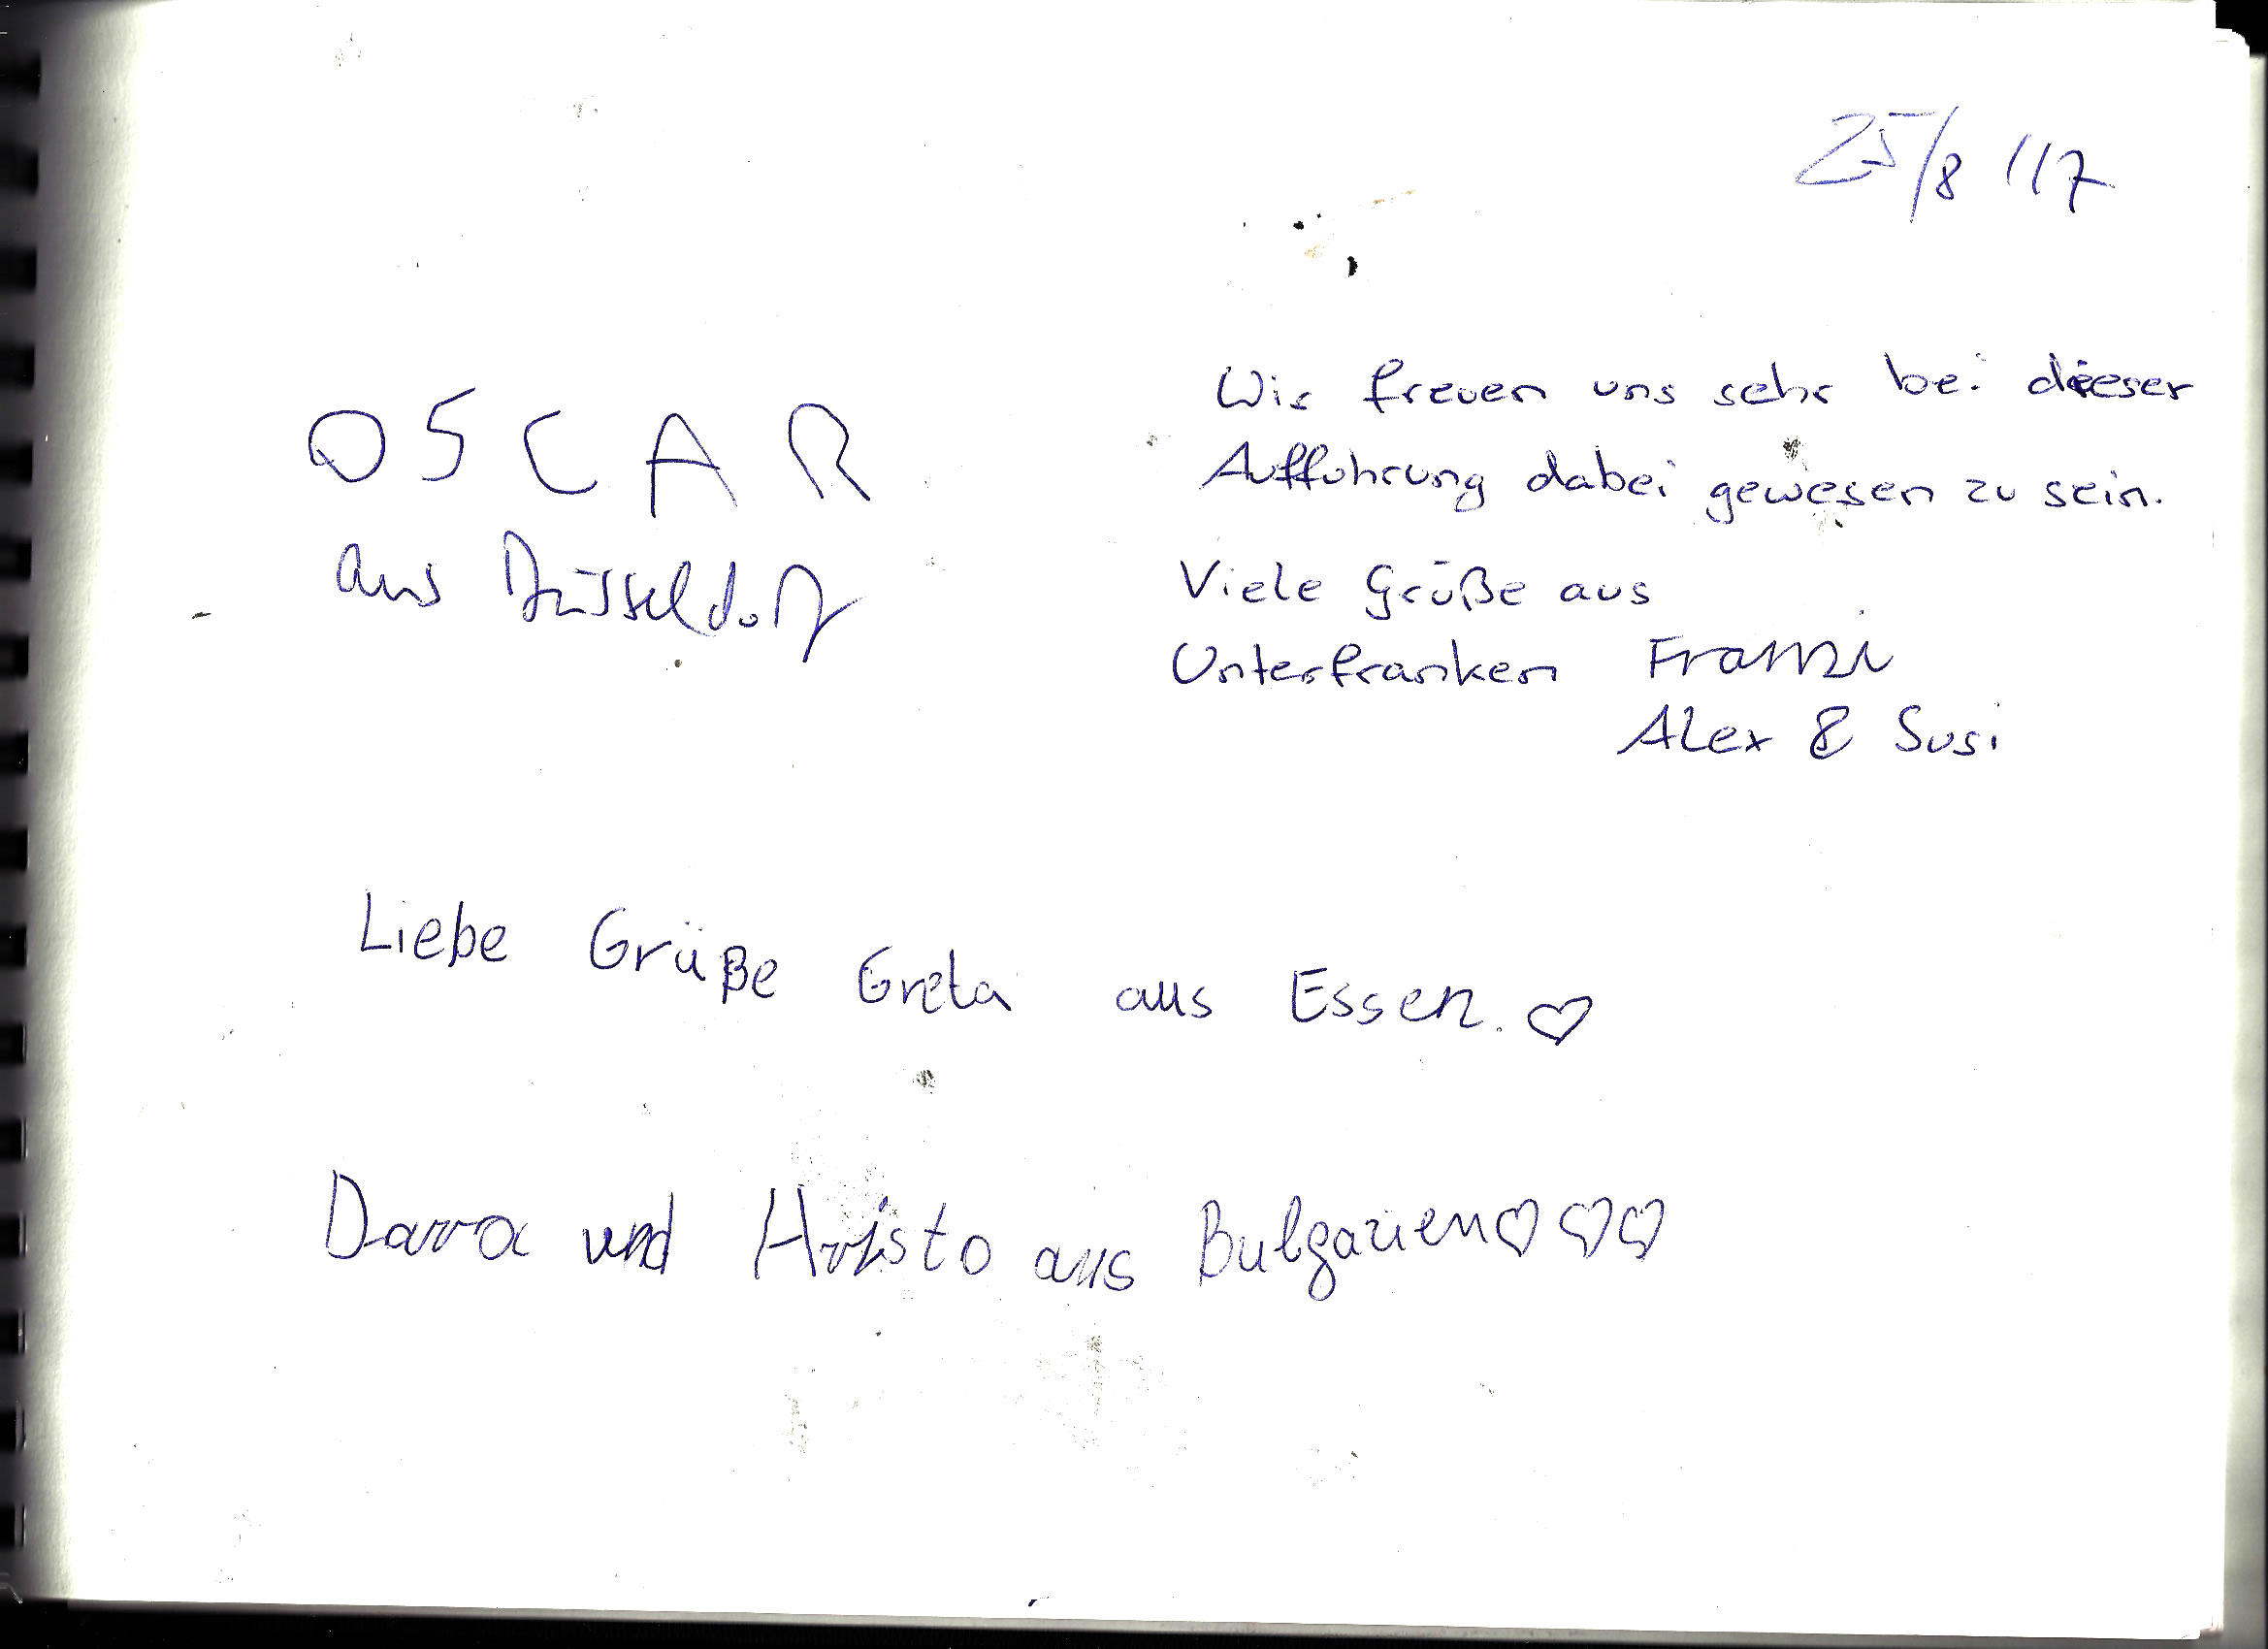 25/8 117
OSCAR
aus Düsseldorf
Wir freuen uns sehr bei dieser
Aufführung dabei gewesen zu sein.
Viele Grüße aus
Unterfranken Franzi
Alex & Susi
Liebe Grüße Greta aus Essen. ♡
Darra und Hristo aus Bulgarien♡♡♡